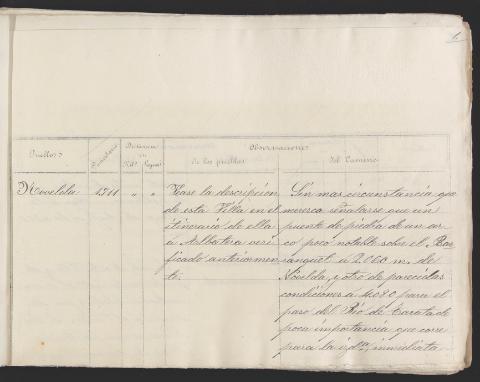 1.
Pueblos
Vecindario
Distancia en
Kils. Leguas
Observaciones
de los pueblos
del Camino
Novelda 1511 " "
Vease la descripcion
de esta Villa en el
itinerario de ella
á Albatera veri
ficado anteriormen
te.
Sin mas circunstancia que
merezca señalarse que un
puente de piedra de un ar
co poco notable sobre el
á 2.060 m. de
Novelda, y otro de parecidas
condiciones á 4.080 para el
paso del Rio de Tarafa de
poca importancia que corre
para la inmediata